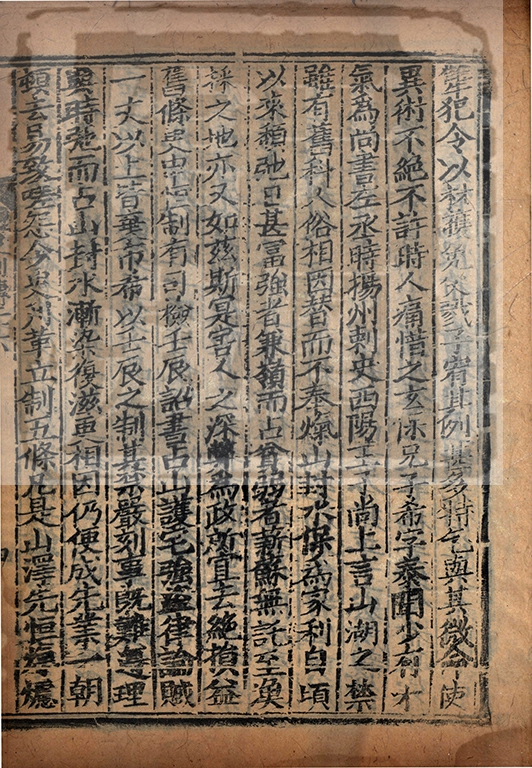 犨犯令以材護免父戮子宥其例甚多特乞與其微命使
異術不絕不許時人痛惜之玄保兄子希字泰聞少有才
氣為尚書左丞時揚州刺史西陽王子尚上言山湖之禁
雖有舊科人俗相因替而不奉熂山封水保為家利自頃
以來頹弛日甚富強者兼嶺而占貧弱者薪蘇無託至漁
採之地亦又如茲斯是害人之深弊為政所宜去絕損益
舊條更申恒制有司檢壬辰詔書占山護宅強盜律論贓
一丈以上皆棄市希以壬辰之制其禁嚴刻事既難遵理
與時弛而占山封水漸染復滋更相因仍便成先業一朝
頓去易致嗟怨今更刊革立制五條凡是山澤先恒熂爈